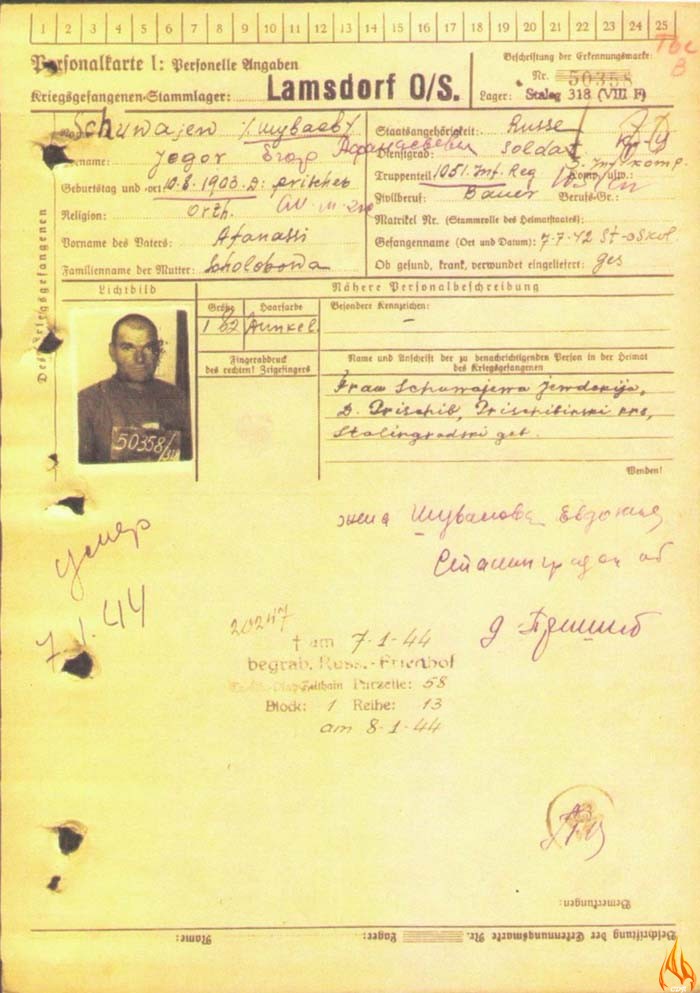 1 2 3 4 5 6 7 8 9 10 11 12 13 14 15 16 17 18 19 20 21 22 23 24 25
Personalkarte I: Personelle Angaben
Beschriftung der Erkennungsmarke:
Nr. 50358
Kriegsgefangenen-Stammlager: Lamsdorf O/S.
Lager: Stalag 318 (VIII F)
Schuwajew /Шуваев/
Staatsangehörigkeit: Russe
Vorname: Jegor Егор Афанасьевич
Dienstgrad: Soldat
Geburtstag und -ort 10.8.1903 D.
Truppenteil 1051 Inf. Reg Komp. usw.:
Religion: Orth.
Zivilberuf: Bauer Berufs-Gr.:
Matrikel Nr. (Stammrolle des Heimatstaates):
Vorname des Vaters: Afanassi
Gefangennahme (Ort und Datum): 7.7.42 St-oskol
Familienname der Mutter: Scholobowa
Ob gesund, krank, verwundet eingeliefert: ges
Des Kriegsgefangenen
Lichtbild
Nähere Personalbeschreibung
Größe Haarfarbe Besondere Kennzeichen:
1 62 dunkel –
Fingerabdruck
des rechten! Zeigefingers
Name und Anschrift der zu benachrichtigenden Person in der Heimat
des Kriegsgefangenen
Frau Schuwajewa Jewdokija,
D. Prischib,
Stalingradski geb.
50358
Wenden!
жена Шувалова Евдокия
Сталинградск об
д Пришиб
умер
7.1.44
20247
† am 7-1-44
begrab. Russ.-Friedhof
Zeithain Parzelle: 58
Block: 1 Reihe: 13
am 8-1-44
Bemerkungen:
Beschriftung der Erkennungsmarke Nr. Lager: Name: